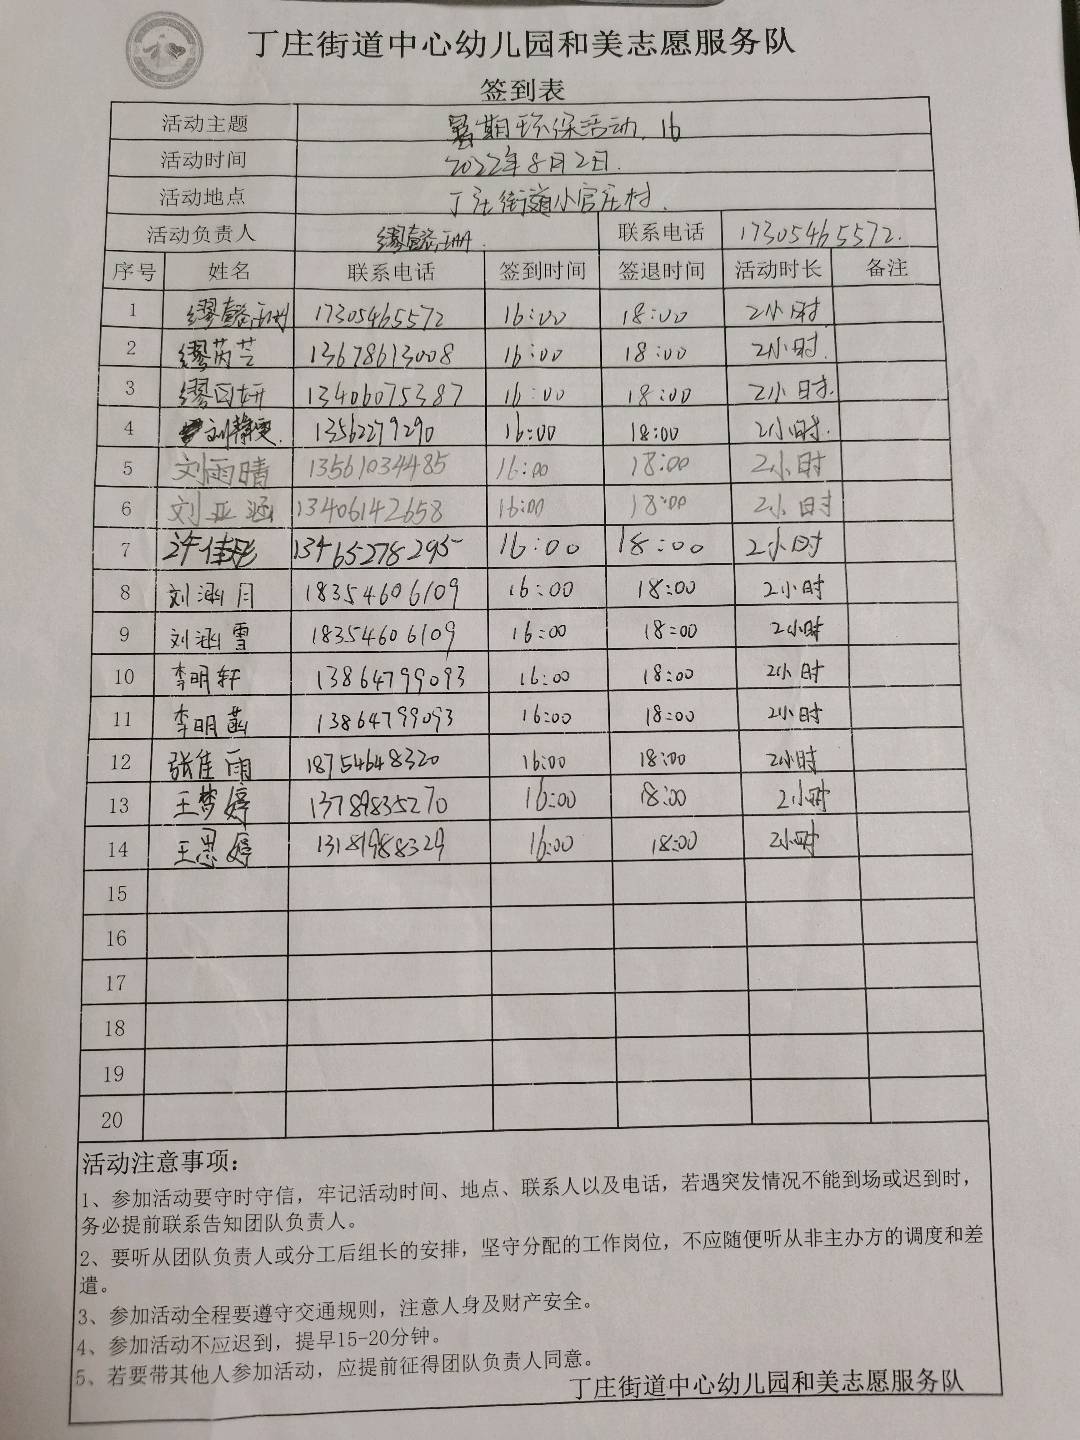 丁庄街道中心幼儿园和美志愿服务队
签到表
活动主题 暑期环保活动.16
活动时间 2022年8月2日.
活动地点 丁庄街道小官庄村.
活动负责人 缪懿珊. 联系电话 17305465572.
序号 姓名 联系电话 签到时间 签退时间 活动时长 备注
1 缪懿珊 17305465572 16:00 18:00 2小时
2 缪芮芸 13678613008 16:00 18:00 2小时.
3 缪 妍 13406075387 16:00 18:00 2小时.
4 刘静雯. 13562279290 16:00 18:00 2小时.
5 刘雨晴 13561034485 16:00 18:00 2小时
6 刘亚涵 13406142658 16:00 18:00 2小时
7 许佳彤 13465278295 16:00 18:00 2小时
8 刘涵月 18354606109 16:00 18:00 2小时
9 刘涵雪 18354606109 16:00 18:00 2小时
10 李明轩 13864799093 16:00 18:00 2小时
11 李明菡 13864799093 16:00 18:00 2小时
12 张佳雨 18754648320 16:00 18:00 2小时
13 王梦婷 13789835270 16:00 18:00 2小时
14 王思婷 13181988329 16:00 18:00 2小时
15
16
17
18
19
20
活动注意事项：
1、参加活动要守时守信，牢记活动时间、地点、联系人以及电话，若遇突发情况不能到场或迟到时，
务必提前联系告知团队负责人。
2、要听从团队负责人或分工后组长的安排，坚守分配的工作岗位，不应随便听从非主办方的调度和差
遣。
3、参加活动全程要遵守交通规则，注意人身及财产安全。
4、参加活动不应迟到，提早15-20分钟。
5、若要带其他人参加活动，应提前征得团队负责人同意。
丁庄街道中心幼儿园和美志愿服务队